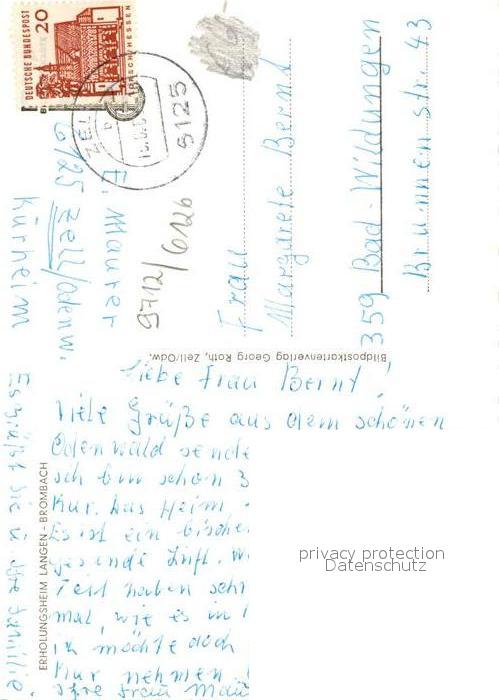 DEUTSCHE BUNDESPOST
20
LORSCH/HESSEN
ZELL
6125
E. Maurer
6125 Zell/Odenw.
Kurheim
9712/6126
Frau
Margarete Bernd
359 Bad-Wildungen
Brunnenstr. 43
Bildpostkartenverlag Georg Roth, Zell/Odw.
Liebe Frau Bernt!
Viele Grüße aus dem schönen
Odenwald sende
ich bin schon 3
Kur. Das Heim
Es ist ein bische
gesunde Luft. W
Teil haben sehr
mal, wie es in
ich möchte doch
Kur nehmen
Ihre Frau Mau
Es grüßt Sie u. Ihre Familie
ERHOLUNGSHEIM LANGEN-BROMBACH
privacy protection
Datenschutz